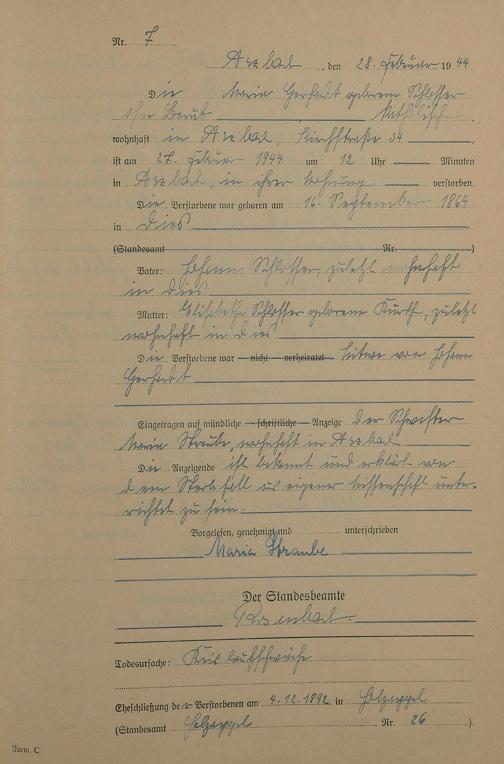 Nr. 7
Arzbach, den 28. Februar 1944
Die Maria Gerhardt geborene Schlosser
ohne Beruf katholisch
wohnhaft in Arzbach, Kirchstraße 34
ist am 27. Februar 1944 um 12 Uhr Minuten
in Arzbach, in ihrer Wohnung verstorben.
Die Verstorbene war geboren am 16. September 1864
in Dies
(Standesamt Nr. )
Vater: Johann Schlosser, zuletzt wohnhaft
in Dies
Mutter: Elisabetha Schlosser geborene Kurth, zuletzt
wohnhaft in Dies
Die Verstorbene war nicht verheiratet Witwe von Johann
Gerhardt
Eingetragen auf mündliche schriftliche Anzeige der Schwester
Maria Straube, wohnhaft in Arzbach
Die Anzeigende ist bekannt und erklärt von
dem Sterbefall aus eigener Wissenschaft unter-
richtet zu sein.
Vorgelesen, genehmigt und unterschrieben
Maria Straube
Der Standesbeamte
Todesursache: Kreislaufschwäche
Eheschließung der Verstorbenen am 4.12.1892 in Holzappel
(Standesamt Holzappel Nr. 26 ).
Form. C